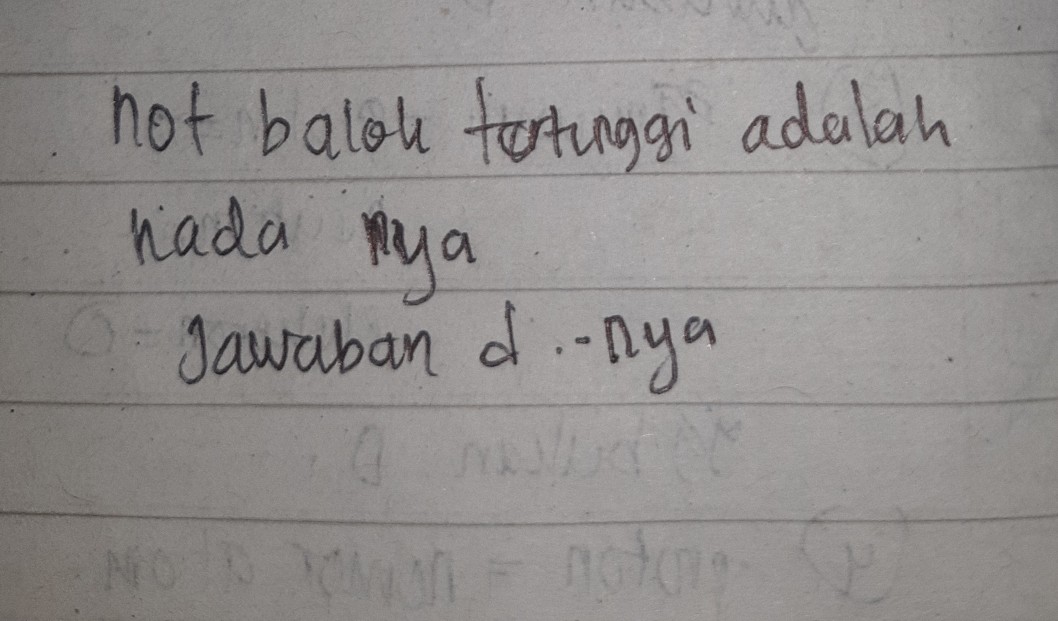 not balok tertinggi adalah
nada nya
Jawaban d .-nya